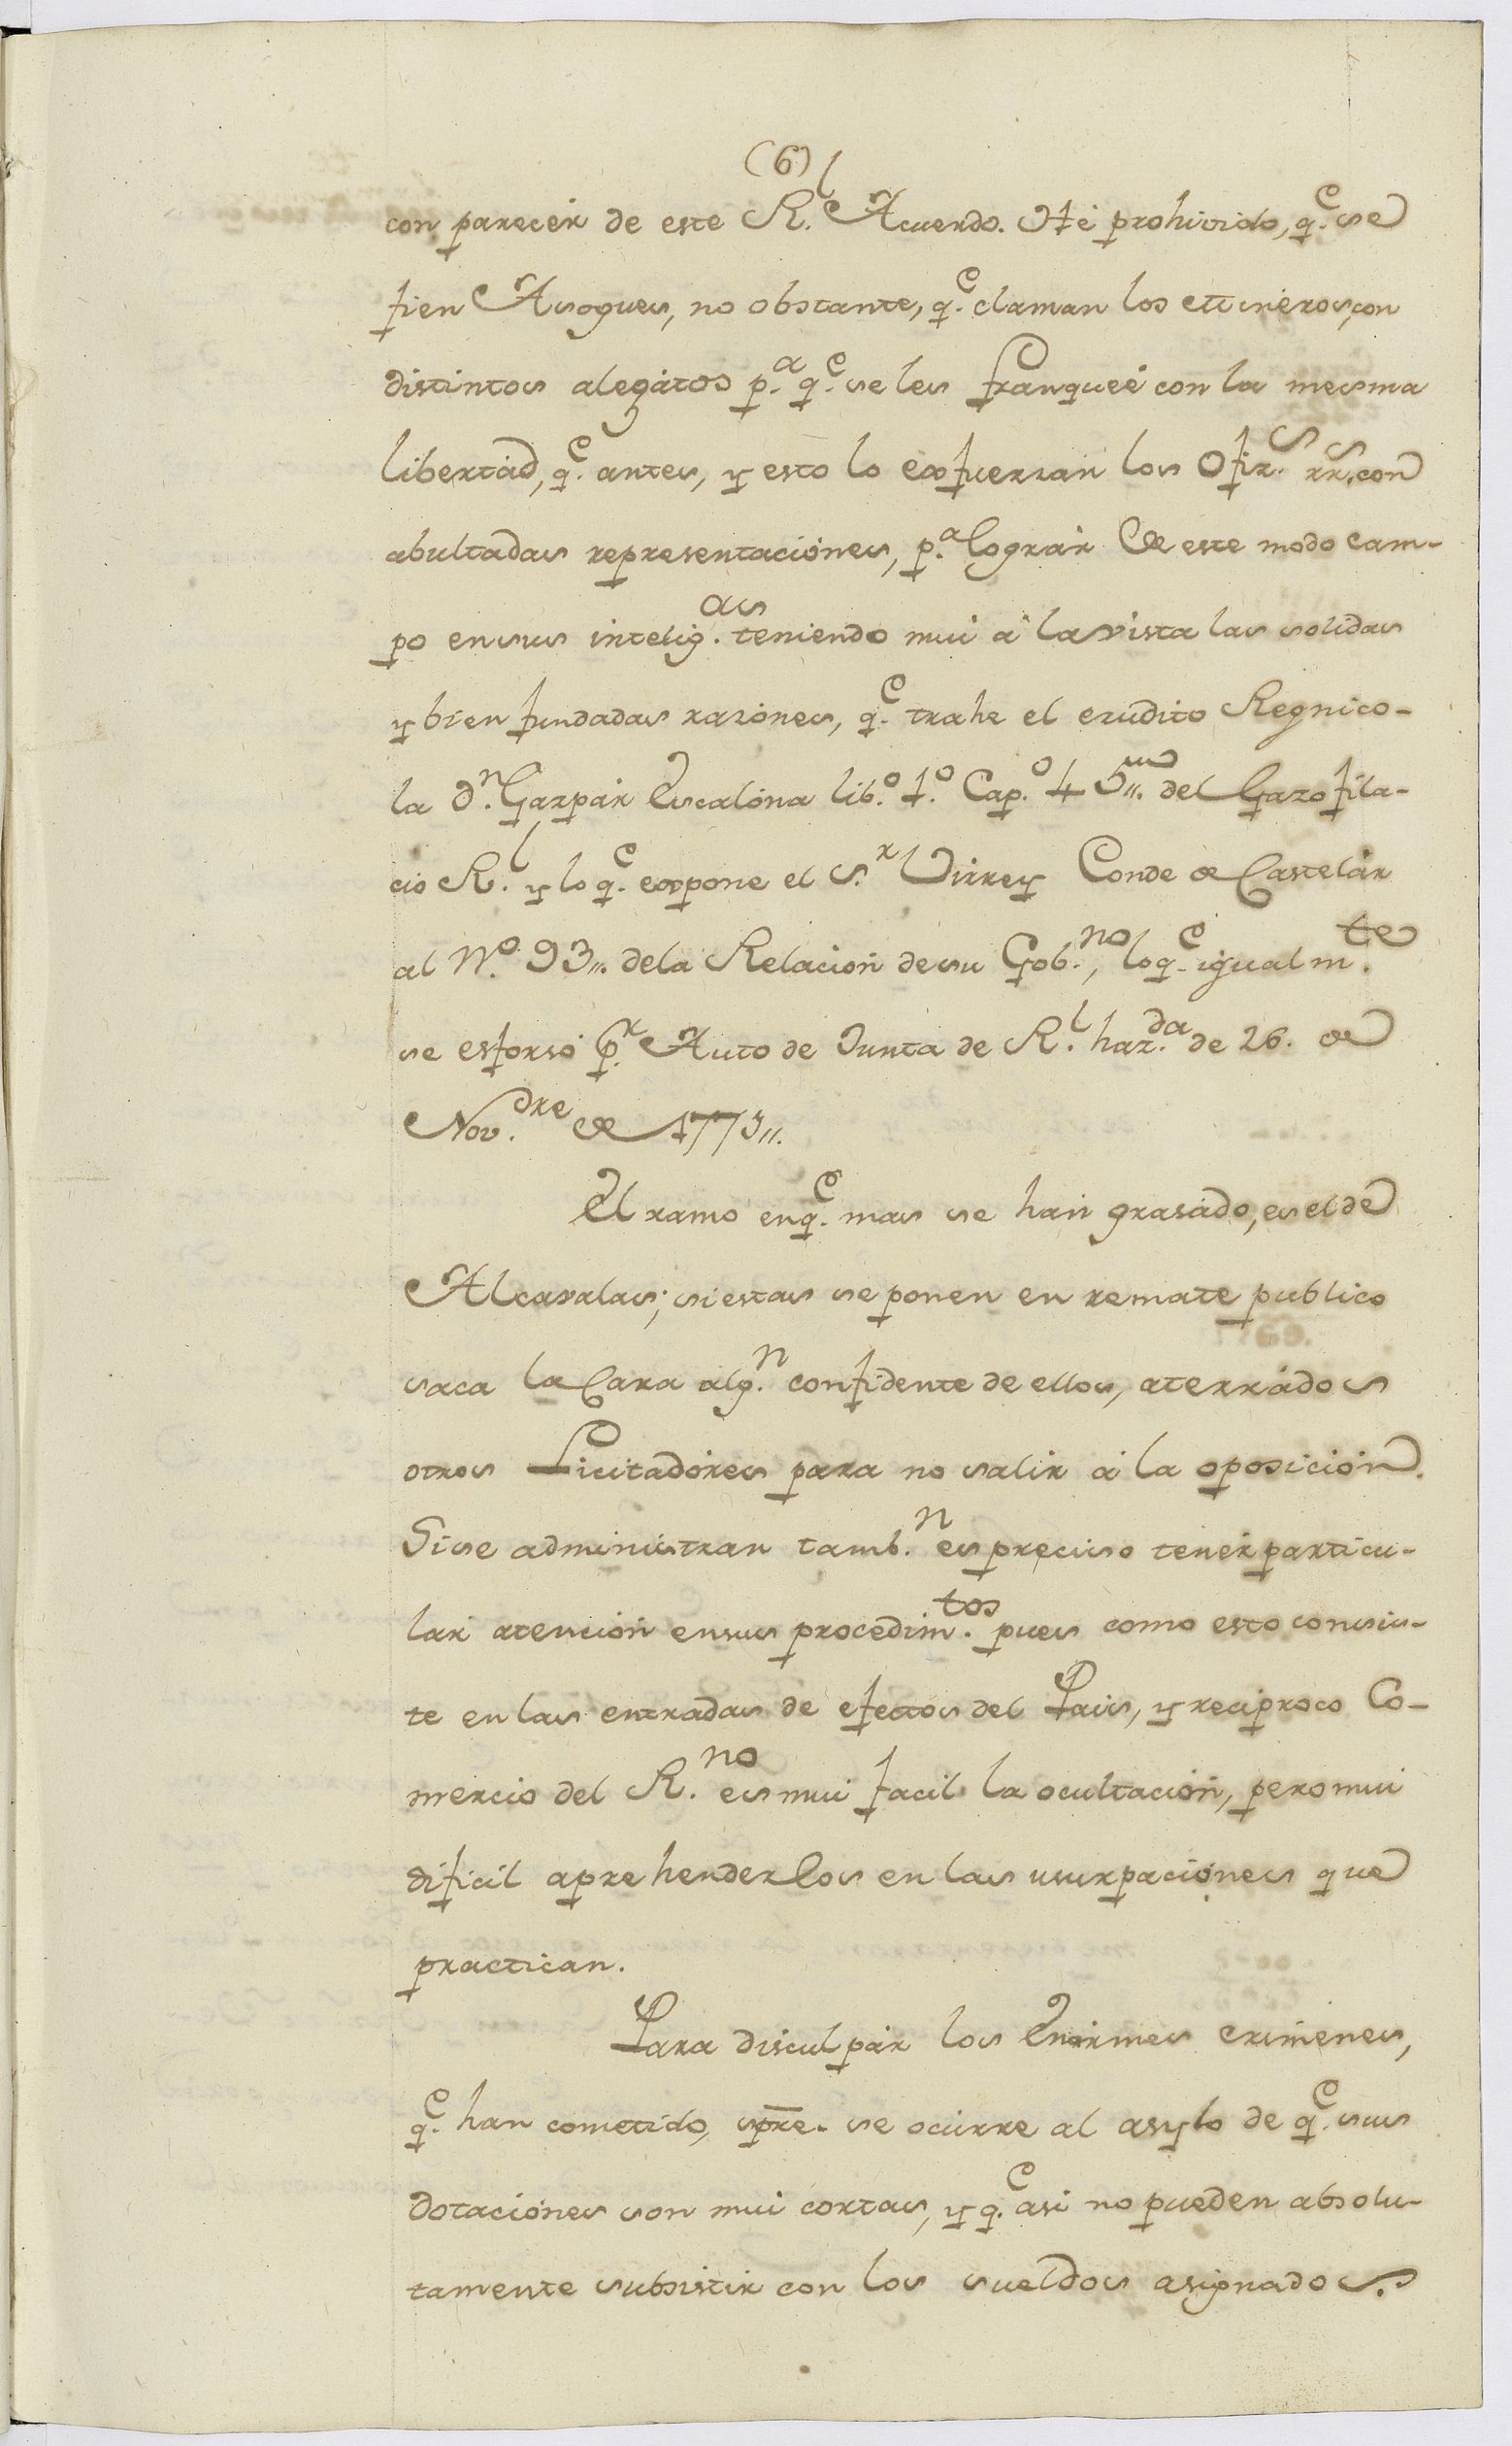 (6)
con parecér de este R.l Acuerdo. Hé prohivido, q.e se
fien Asogues, no obstante, q.e claman los Mineros, con
distintos alegátos p.a q.e se les franqueé con la mesma
libertád, q.e antes, y esto lo exfuerzan los Ofiz.s rr.s con
abultadas representaciónes, p.a lográr de este modo cam-
po en sus intelig.as teniendo mui á la vista las solidas
y bien fundadas razónes, q.e trahe el erudíto Regnico-
la d.n Gazpár Escalóna lib.o 1.o Cap.o 45,,. del Gazofila-
cio R.l y lo q.e expone el S.r Virrey Conde de Castelár
al N.o 93,,. dela Relación de su Gob.no, lo q.e igualm.te
se esforsó p.r Auto de Junta de R.l haz.da de 26. de
Nov.bre de 1773,,.
El ramo en q.e mas se han grasádo, es el de
Alcavalas; si estas se ponen en remate publico
saca la Cara alg.n confidente de ellos, aterrádos
otros Licitadóres para no salir á la oposición.
Si se administran tamb.n es preciso tenér particu-
lar atención en sus procedim.tos pues como esto consis-
te en las entradas de efectos del Pais, y reciproco Co-
mercio del R.no es mui facil la ocultación, pero mui
dificil aprehenderlos en las usurpaciónes que
practican.
Para disculpár los Enórmes crimenes,
q.e han cometido, spre. se ocurre al asylo de q.e sus
dotaciónes son mui cortas, y q.e asi no pueden absolu-
tamente subsistir con los sueldos asignados.